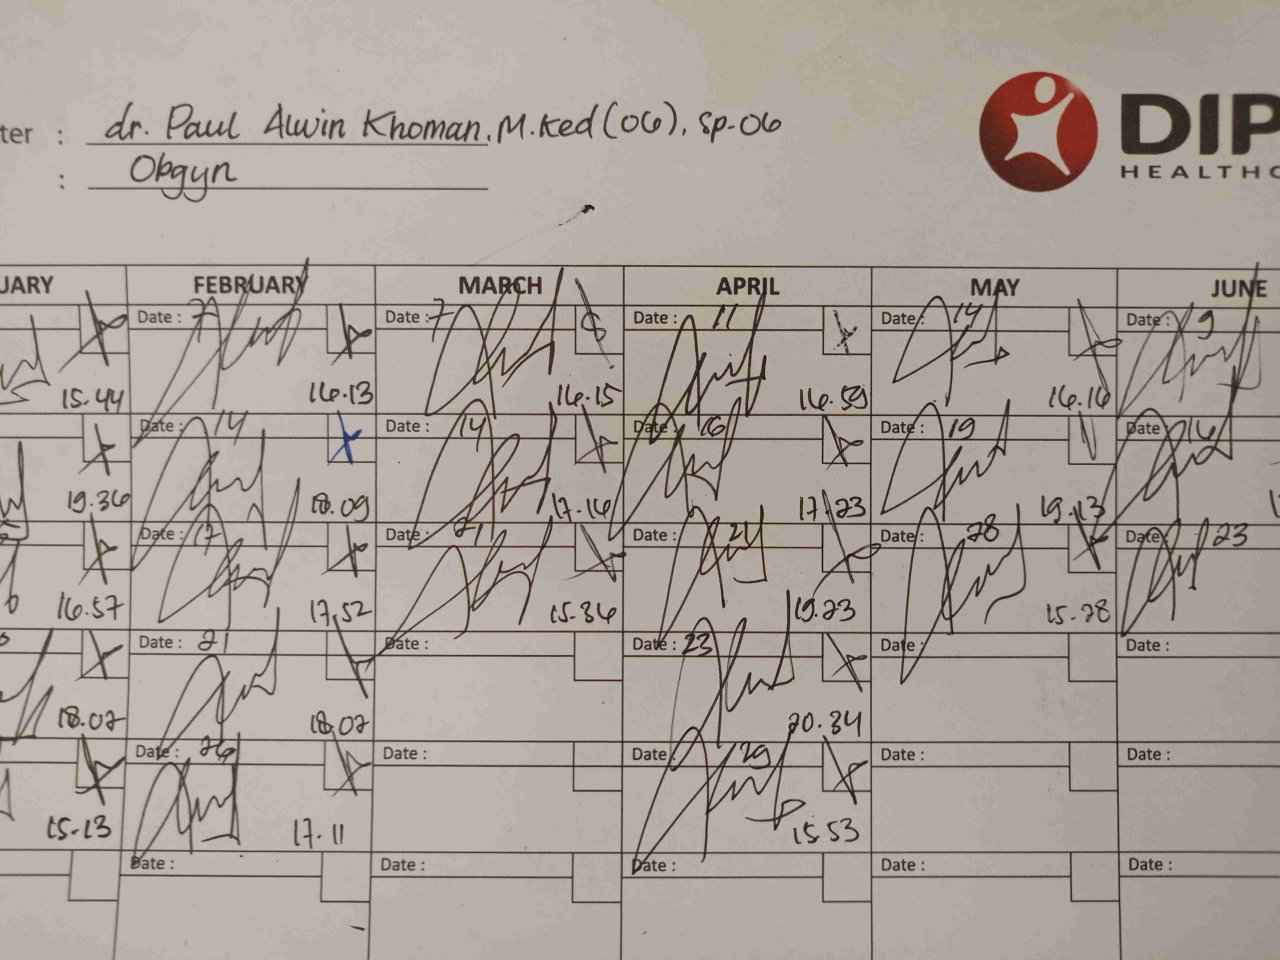 ter : dr. Paul Alwin Khoman, M.Ked (OG), Sp-OG
: Obgyn
DIP
HEALTHC
UARY FEBRUARY MARCH APRIL MAY JUNE
Date : 7 Date : 7 Date : 11 Date : 14 Date : 9
15.44 16.13 16.15 16.59 16.16
Date : 14 Date : 14 Date : 16 Date : 19 Date : 16
19.36 18.09 17.16 17.23 19.13
Date : 17 Date : 21 Date : 21 Date : 28 Date : 23
16.57 17.52 15.36 19.23 15.28
Date : 21 Date : Date : 23 Date : Date :
18.02 18.02 20.34
Date : 26 Date : Date : 29 Date : Date :
15.13 17.11 15.53
Date : Date : Date : Date : Date :